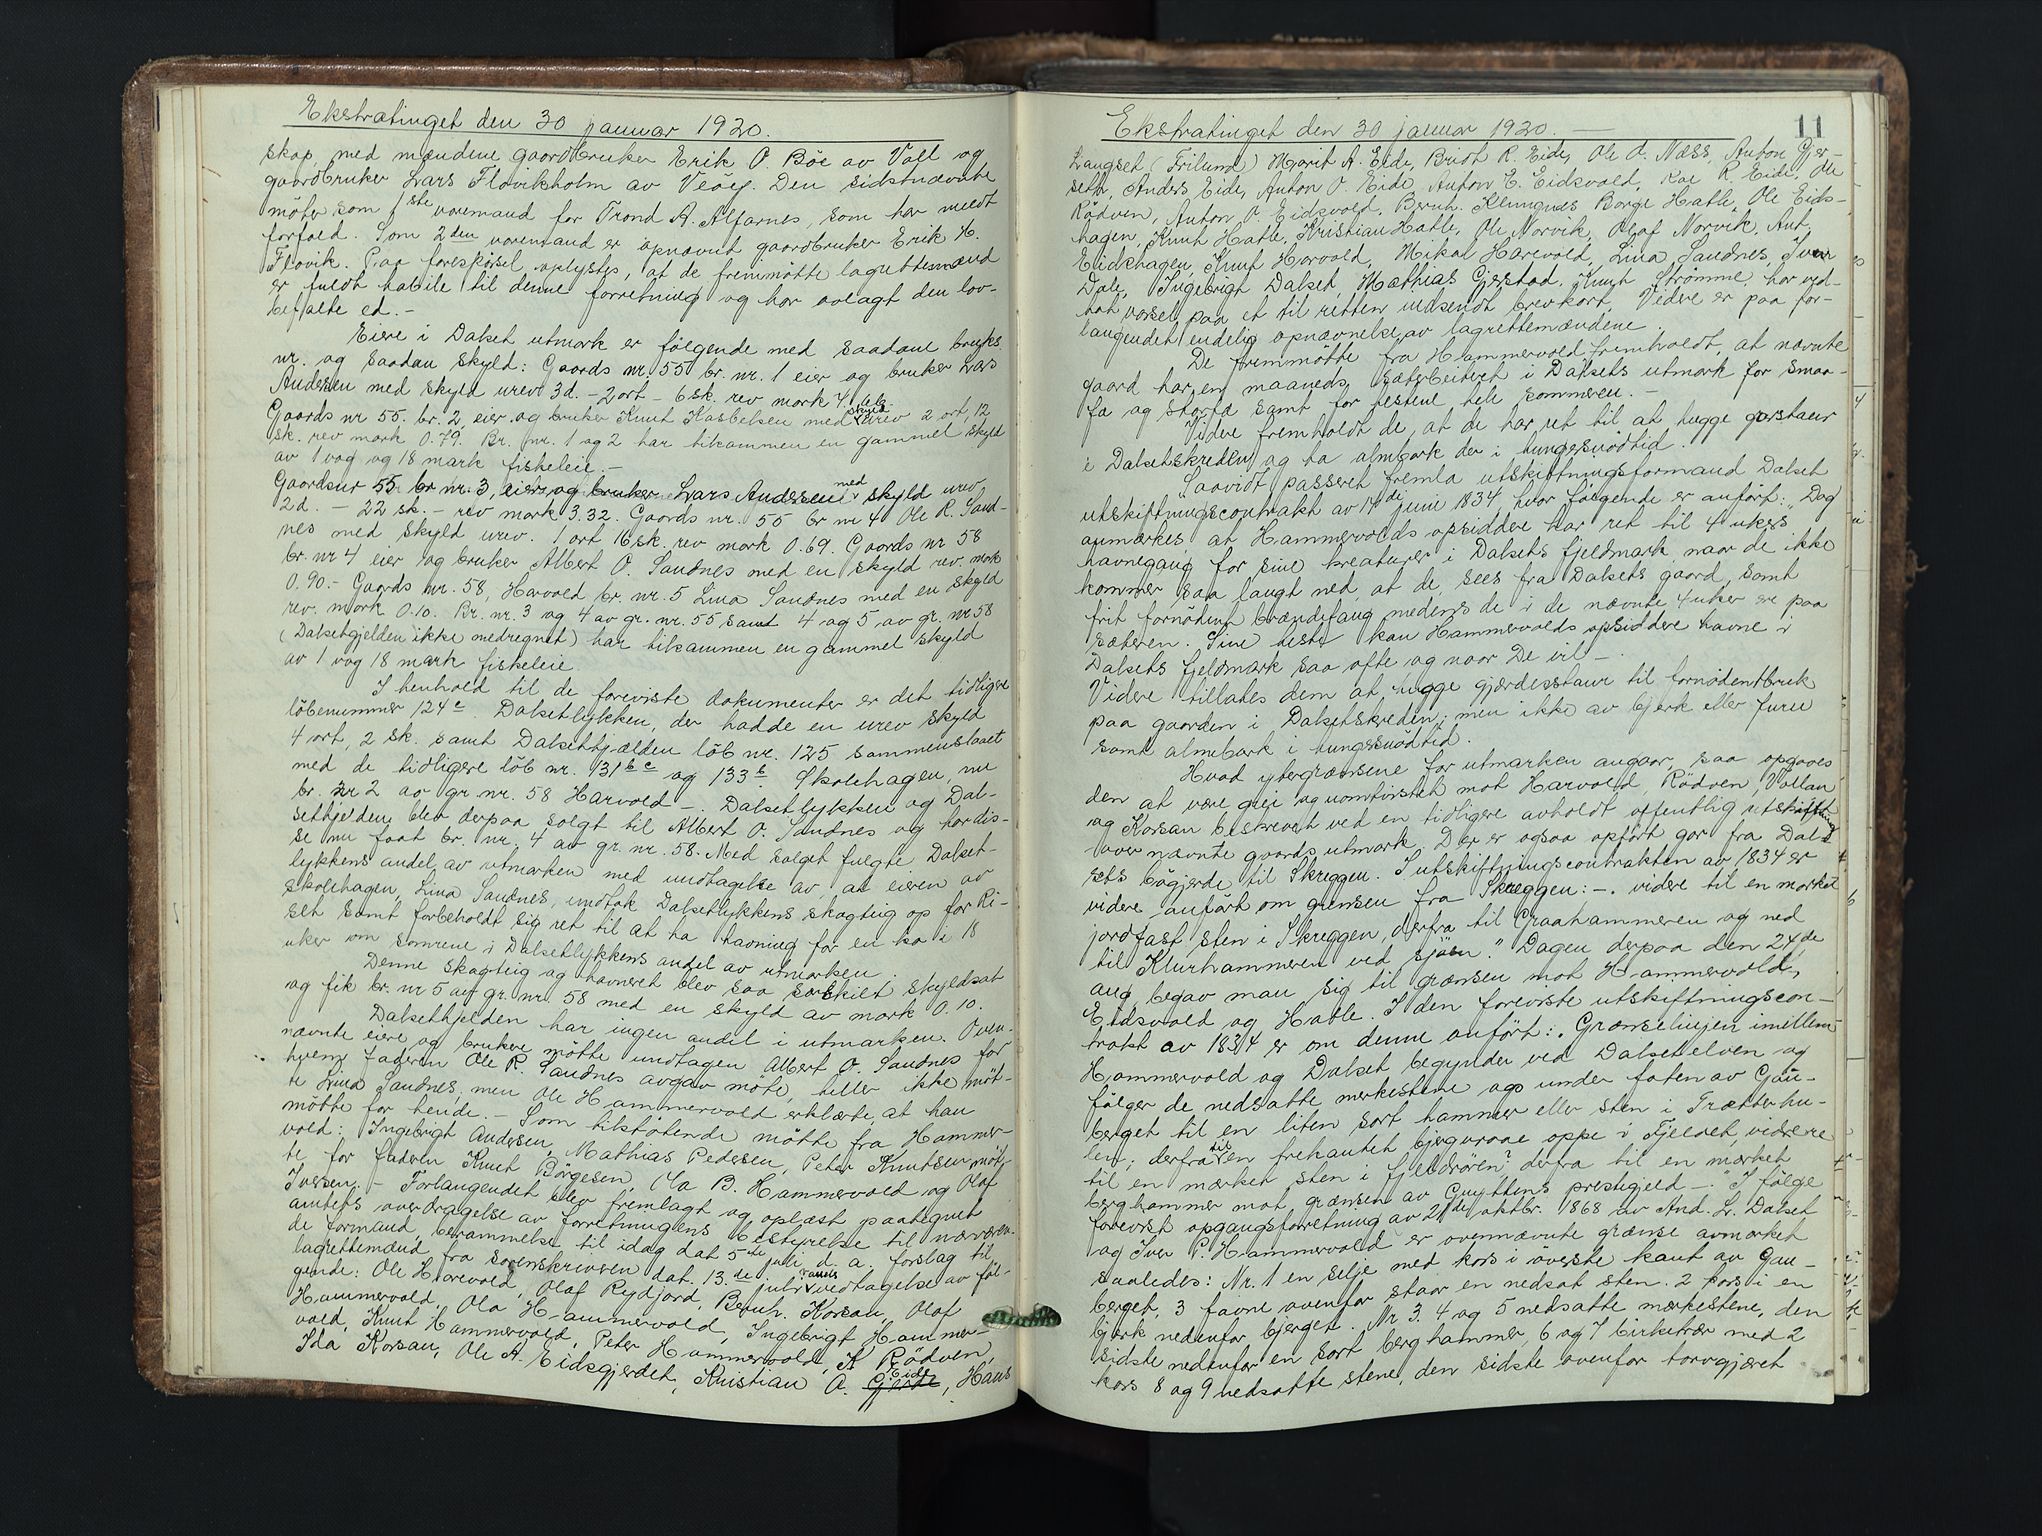 Ekstratinget den 30 januar 1920.
skap, med mændene gaardbruker Erik O. Böe av Voll og
gaardbruker Lars Flovikholm av Veöy. Den sidstnævnte
möter som 1ste varamand for Trond A. Alfarnes, som har meldt
forfald. Som 2den varamand er opnævnt gaardbruker Erik H.
Flovik. Paa forespörsel oplystes, at de fremmötte lagrettesmænd
er fuldt habile til denne forretning og har avlagt den lov-
befalte ed. -
Eiere i Dalset utmark er fölgende med saadane bruks
nr. og saadan skyld: Gaards nr 55 br. nr. 1 eier og bruker Lars
Andersen med skyld urev 3d. - 2 ort - 6 sk. rev mark 4,
Gaards nr 55. br. 2, eier og bruker Knut Kasbelsen med skyld urev 2 ort, 12
sk. rev mark 0.79. Br. nr. 1 og 2 har tilsammen en gammel skyld
av 1 vog og 18 mark fiskeleie. -
Gaardsnr 55 br nr. 3, eier og bruker Lars Andersen med skyld urev
2d. - 22 sk. - rev mark 3.32. Gaards nr. 55 br nr 4 Ole R. Sand-
nes med skyld urev. 1 ort 16 sk. rev mark 0.69. Gaards nr 58
br. nr 4 eier og bruker Albert O. Sandnes med en skyld rev. mark
0.90. - Gaards nr. 58, Harvold br. nr. 5 Lina Sandnes med en skyld
rev. mark 0.10. Br. nr. 3 og 4 av gr. nr. 55 samt 4 og 5 av gr. nr 58
(Dalsethjelden ikke medregnet) har tilsammen en gammel skyld
av 1 vog 18 mark fiskeleie.
I henhold til de foreviste dokumenter er det tidligere
löbenummer 124c. Dalsetlykken, der hadde en urev skyld
4 ort, 2 sk. samt Dalsethjælden löb nr. 125 sammenslaaet
med de tidligere löb nr. 131 b c og 133 b Skolehagen, nu
br. nr 2 av gr. nr. 58 Harvold -. Dalsetlykken og Dal-
sethjelden blev derpaa solgt til Albert O. Sandnes og har dis-
se nu faat br. nr. 4 av gr. nr. 58. Med salget fulgte Dalset-
lykkens andel av utmarken med undtagelse av at eieren av
skolehagen, Lina Sandnes, undtok Dalsetlykkens skogteig op for Ri-
set samt forbeholdt sig ret til at ha havning for en ko i 18
uker om somrene i Dalsetlykkens andel av utmarken.
Denne skogteig og havneret blev saa særskilt skyldsat
og fik br. nr 5 av gr. nr. 58 med en skyld av mark 0.10.
Dalsethjelden har ingen andel i utmarken. Oven-
nævnte eiere og brukere mötte undtagen Albert O. Sandnes for
hvem faderen Ole R. Sandnes avgav möte, heller ikke möt-
te Lina Sandnes, men Ole Hammervold erklærte, at han
mötte for hende. - Som tilstötende mötte fra Hammer-
vold: Ingebrigt Andersen, Mathias Pedersen, Peter Knutsen möt-
te for faderen Knut Börgesen, Ola B. Hammervold og Olaf
Iversen. - Forlangendet blev fremlagt og oplæst paategnet
amtets overdragelse av forretningens bestyrelse til nærværen-
de formand, berammelse til idag dat 5te juli d. a., forslag til
lagrettemænd fra sorenskriveren dat. 13.de juli samt vedtagelse av föl-
gende: Ole Harevold, Olaf Rydjord, Bernh. Korsan, Olaf
Hammervold, Ola Hammervold, Ingebrigt Hammer-
vold, Knut Hammervold, Peter Hammervold, K Rödven
Ida Korsan, Ole A. Eidsgjerdet, Kristian A. Eide, Hans
Ekstratinget den 30 januar 1920. -
11
Langset (Frilund) Marit A. Eide, Brist R. Eide, Ole O. Næss, Anton Gjer-
seth, Anders Eide, Anton O. Eide, Anton E. Eidsvold, Kae R Eide, Ole
Rödven, Anton O Eidsvold, Bernh. Klungnes Borge Hatle, Ole Eids-
hagen, Knut Hatle, Kristian Hatle, Ole Norvik, Olaf Norvik, Ant.
Eidshagen, Knut Horvold, Mikal Harevold, Lina Sandnes, Iver
Dale, Ingebrigt Dalset, Mathias Gjerstad, Knut Strömme, har ved-
tat varsel paa et til retten indsendt brevkort. Videre er paa for-
langendet endelig opnævnelse av lagrettemændene.
De fremmötte fra Hammervold fremholdt, at nævnte
gaard har en maaneds sæterbeiteret i Dalsets utmark for smaa-
fa og storfa samt for hestene hele sommeren. -
Videre fremholdt de, at de har ret til at hugge garstaur
i Dalsetskreden og ta almbark der i hungersnödtid.
Saavidt passeret fremla utskiftningsformand Dalset
utskiftningscontrakt av 17de juni 1834 hvor fölgende er anfört: "Dog
anmærkes, at Hammervolds opsiddere har ret til 4 ukers
havnegang for sine kreaturer i Dalsets fjeldmark naar de ikke
kommer saa langt ned, at de sees fra Dalsets gaard, samt
frit fornödent brændefang medens de i de nævnte 4 uker er paa
sæteren. Sine heste kan Hammervolds opsiddere havne i
Dalsets fjeldmark saa ofte og naar De vil -.
Videre tillates dem at hugge gjærdesstaur til fornödent bruk
paa gaarden i Dalsetskreden, men ikke av bjerk eller furu
samt almebark i hungersnödtid.
Hvad ytergrænsene for utmarken angaar, saa opgaves
den at være grei og uomtvistet mot Harvold, Rödven, Vollan
og Korsan beskrevet ved en tidligere avholdt offentlig utskiftning
over nævnte gaards utmark. Der er ogsaa opfört gar fra Dal-
sets bögjerde til Skreggen. I utskiftningscontrakten av 1834 er
videre anfört om grensen fra Skreggen: -. videre til en merket
jordfast sten i Skreggen, derfra til Graahammeren og ned
til Klurhammeren ved sjöen." Dagen derpaa den 24de
aug begav man sig til grænsen mot Hammervold,
Eidsvold og Hatle. I den foreviste utskiftningscon-
trakt av 1834 er om denne anfört: "Grænselinjen imellem
Hammervold og Dalset begynder ved Dalsetelven og
fölger de nedsatte merkestene op under foten av Gau-
berget til en liten sort hammer eller sten i Trætterhu-
len, derfra til en firkantet bjergvraae oppe i Fjeldet, videre
til en mærket sten i fjeldrören? derfra til en mærket
berghammer mot grænsen av Gryttens prestegjeld -." I fölge
forevist opgangsforretning av 21de oktbr. 1868 av And. L. Dalset
og Iver P. Hammervold er ovennævnte grænse avmærket
saaledes: Nr. 1 en selje med kors i överste kant av Gau-
berget, 3 favne ovenfor staar en nedsat sten. 2 kors i en
bjerk nedenfor bjerget. Nr 3. 4 og 5 nedsatte mærkestene, den
sidste nedenfor en sort berghammer, 6 og 7 birketrær med 2
kors 8 og 9 nedsatte stene, den sidste ovenfor torvgjæret